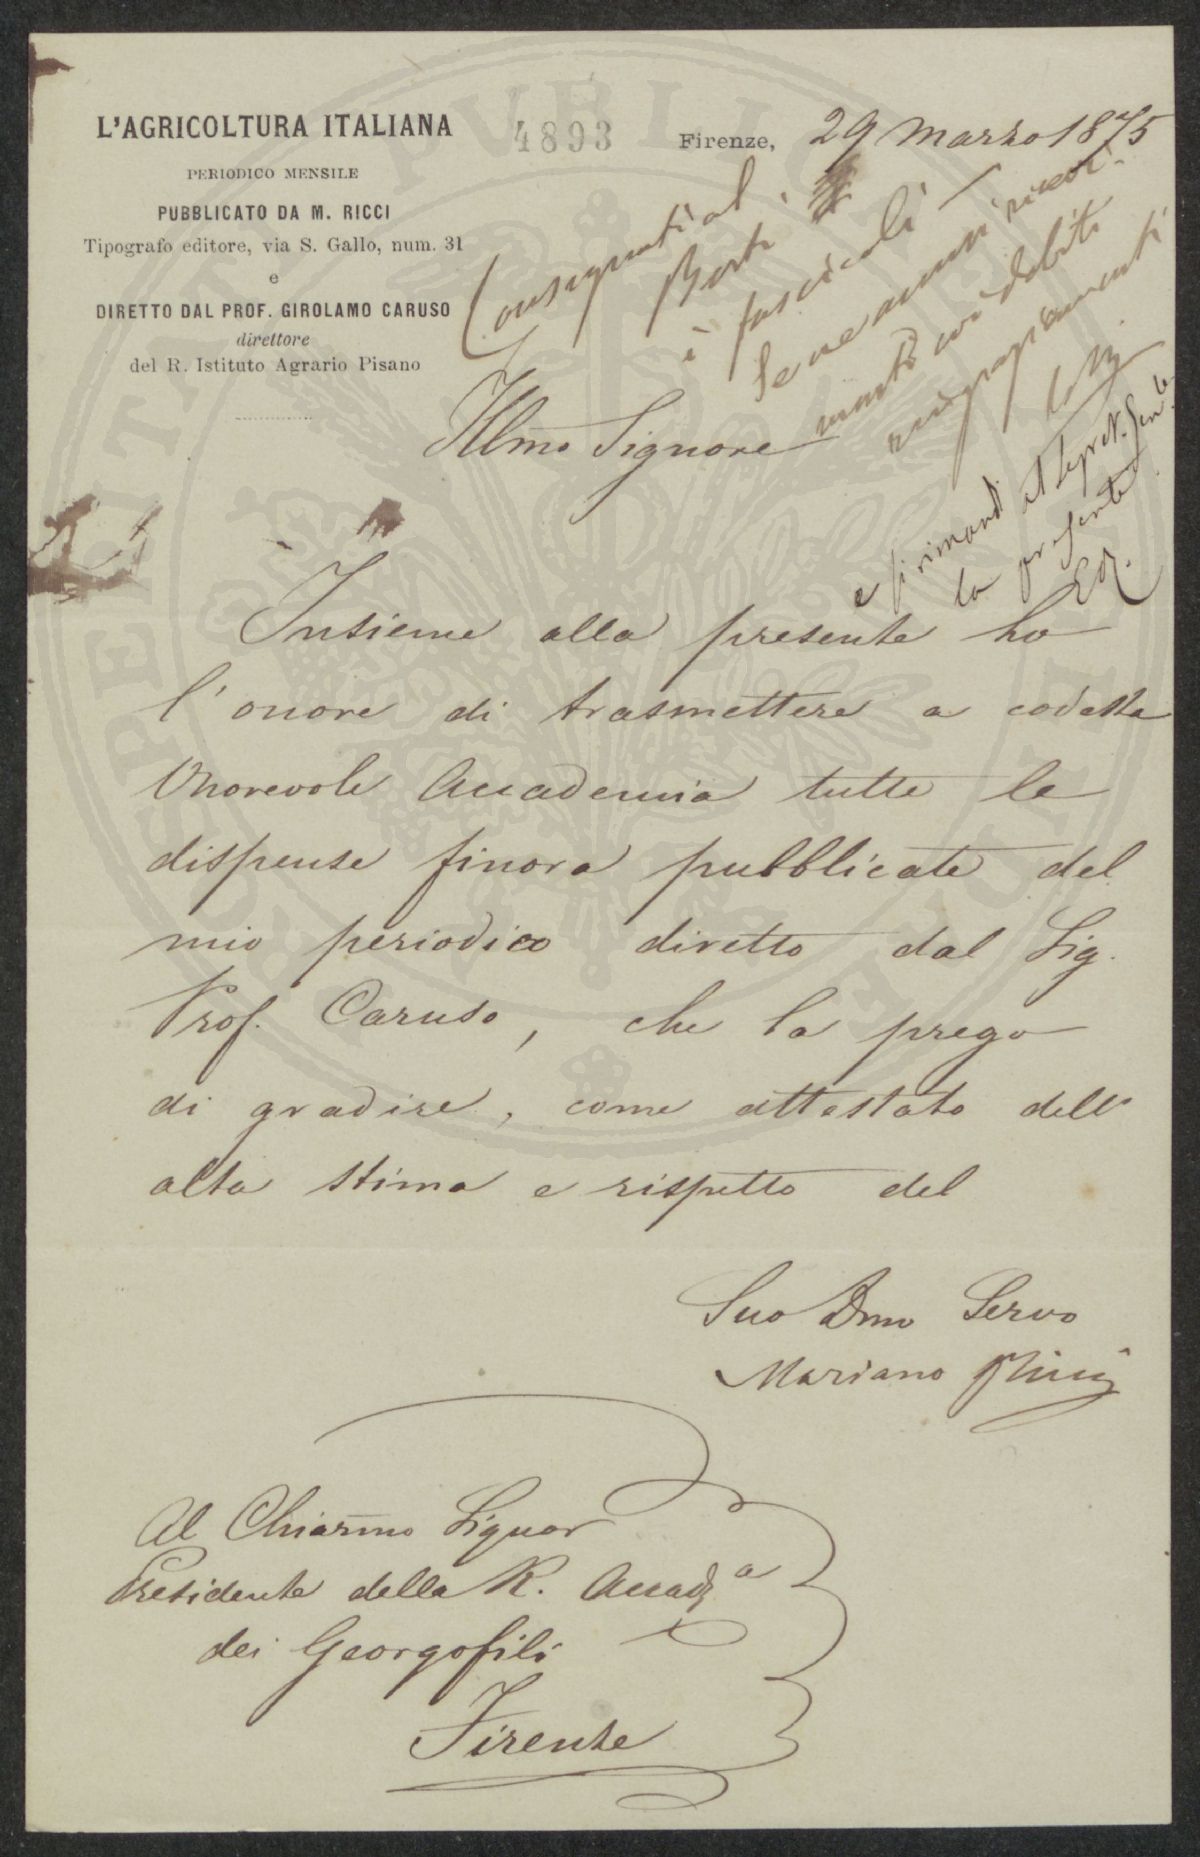 L'AGRICOLTURA ITALIANA
PERIODICO MENSILE
PUBBLICATO DA M. RICCI
Tipografo editore, via S. Gallo, num. 31
e
DIRETTO DAL PROF. GIROLAMO CARUSO
direttore
del R. Istituto Agrario Pisano
4893
Firenze, 29 Marzo 1875
Consegnati al
i fascicoli
Se ne accusi ricevi-
mento coi debiti
ringraziamenti
e si rimandi al
la presente
Illm̃o Signore
Insieme alla presente ho
l'onore di trasmettere a codesta
Onorevole Accademia tutte le
dispense finora pubblicate del
mio periodico diretto dal Sig.
Prof. Caruso, che la prego
di gradire, come attestato dell'
alta stima e rispetto del
Suo Dmo Servo
Mariano Ricci
Al Chiarm̃o Signor
Presidente della R. Accad.a
dei Georgofili
Firenze